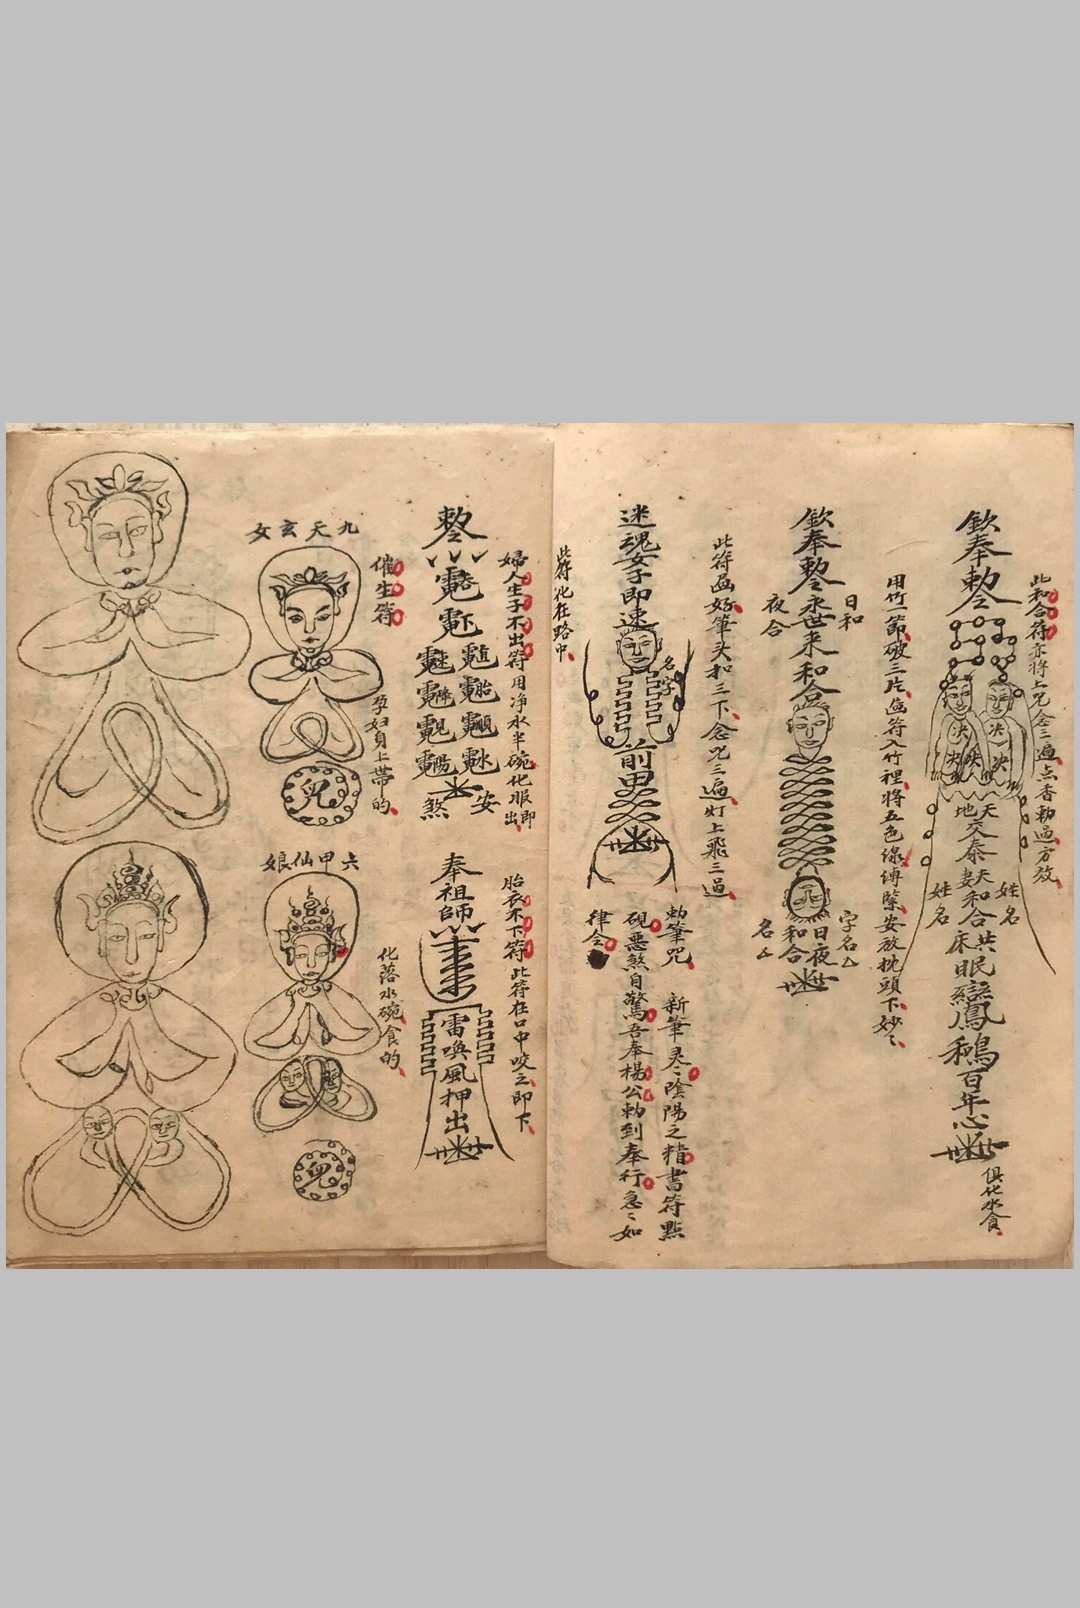 此和合符亦将上咒念三遍点香勅過方效
欽奉勅令
天地交泰夫妻和合共床眠鸞鳳鵁百年心
决
姓名
姓名
俱化水食
用竹一節破三片画符入竹裡将五色線縛緊安放枕頭下妙々
欽奉勅令永世来和合
日和
夜合
日夜和合
字名
名
此符画好筆头扣三下念咒三遍灯上飛三過
迷魂女子即速
名字
前田
勅筆咒
新筆灵々陰陽之精書符點
硯惡煞自驚吾奉楊公勅到奉行急々如
律令
此符化在路中
婦人生子不出符用净水半碗化服即出
胎衣不下符此符在口中咬之即下
安
煞
奉祖師
雷喚風押出
催生符
孕妇身上带的
化落水碗食的
九天玄女
兒
六甲仙娘
兒